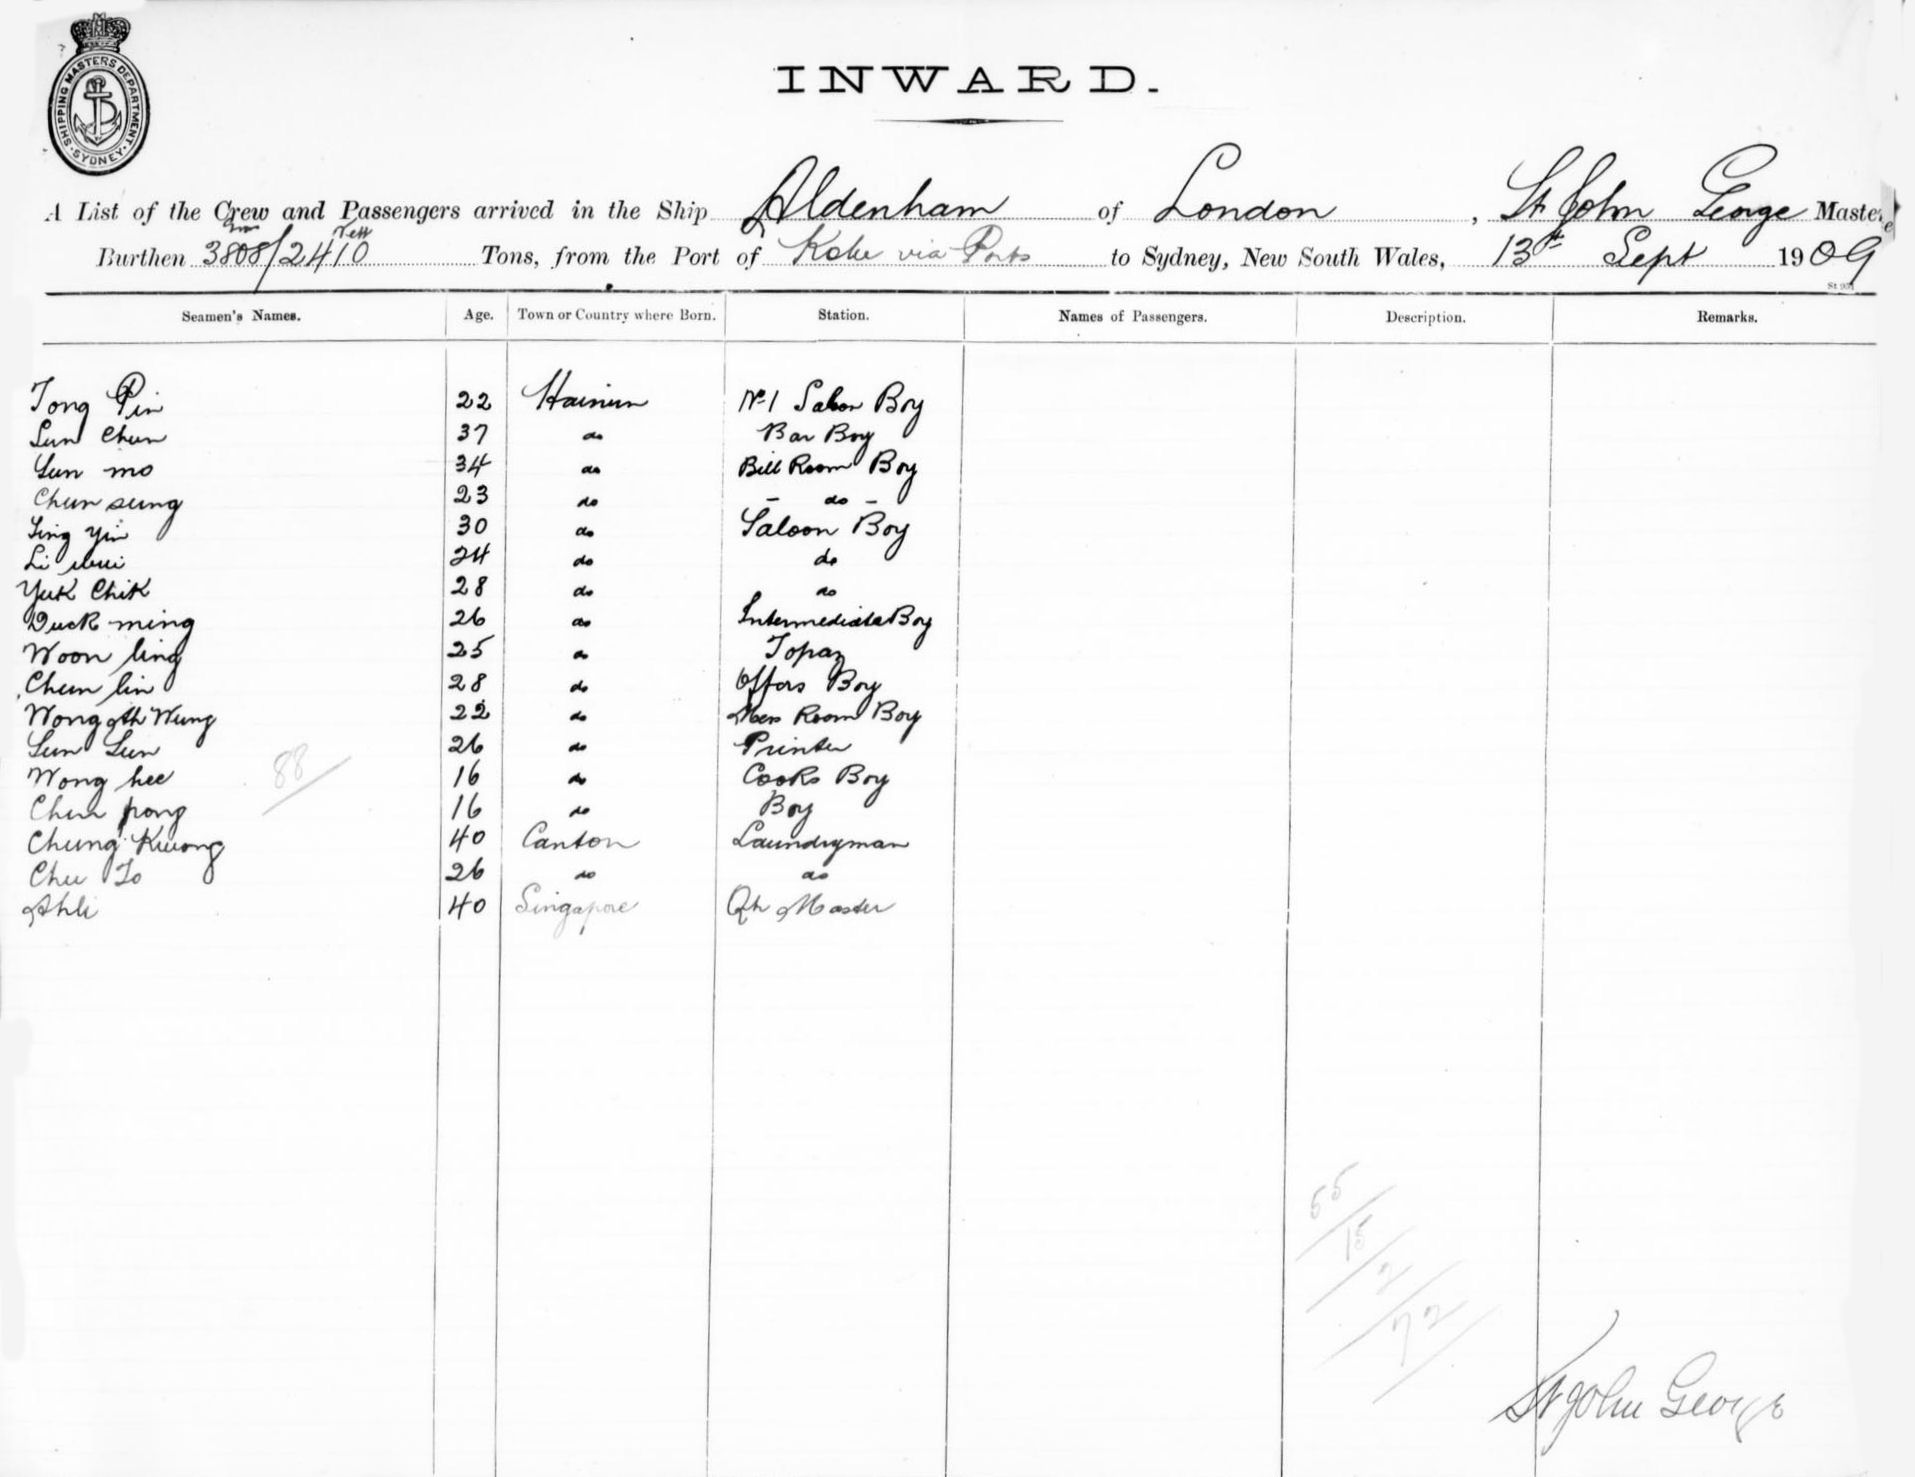 SHIPPING MASTERS DEPARTMENT
SYDNEY
INWARD.
A List of the Crew and Passengers arrived in the Ship Aldenham of London, St John George Master
Burthen 3808/2410 Tons, from the Port of Kobe via Ports to Sydney, New South Wales, 13th Sept 1909
Seamen's Names. Age. Town or Country where Born. Station. Names of Passengers. Description. Remarks.
Tong Pin 22 Hainun No 1 Saloon Boy
Sun Chun 37 do Bar Boy
Sun mo 34 do Bill Room Boy
Chun sung 23 do - do -
Ling Yin 30 do Saloon Boy
Li 24 do do
Yuk Chik 28 do do
Duck ming 26 do Intermediate Boy
Woon ling 25 do Topaz
Chun lin 28 do Offers Boy
Wong Ah Wung 22 do Mess Room Boy
Sun Sun 26 do Printer
Wong hee 16 do Cooks Boy
Chun pong 16 do Boy
Chung Kwong 40 Canton Laundryman
Chu To 26 do do
Ahli 40 Singapore Qr Master
88
55
15
2
72
St John George